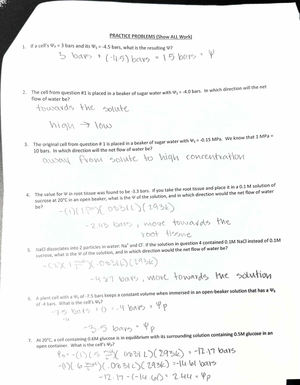 PRACTICE PROBLEMS (Show ALL Work)
1. If a cell's Ψp = 3 bars and its Ψs = -4.5 bars, what is the resulting Ψ?
3 bars + (-4.5) bars = 1.5 bars = Ψ
2. The cell from question #1 is placed in a beaker of sugar water with Ψs = -4.0 bars. In which direction will the net
flow of water be?
towards the solute
high → low
3. The original cell from question # 1 is placed in a beaker of sugar water with Ψs = -0.15 MPa. We know that 1 MPa =
10 bars. In which direction will the net flow of water be?
away from solute to high concentration
4. The value for Ψ in root tissue was found to be -3.3 bars. If you take the root tissue and place it in a 0.1 M solution of
sucrose at 20°C in an open beaker, what is the Ψ of the solution, and in which direction would the net flow of water
be?
-(1)(
)(.0831L)(293K)
bars, move towards the
root tissue
5. NaCl dissociates into 2 particles in water: Na+ and Cl-. If the solution in question 4 contained 0.1M NaCl instead of 0.1M
sucrose, what is the Ψ of the solution, and in which direction would the net flow of water be?
)(.0831L)(293K)
-4.87 bars, move towards the solution
6. A plant cell with a Ψs of -7.5 bars keeps a constant volume when immersed in an open-beaker solution that has a Ψs
of -4 bars. What is the cell's Ψp?
-3.5 bars = Ψp
7. At 20°C, a cell containing 0.6M glucose is in equilibrium with its surrounding solution containing 0.5M glucose in an
open container. What is the cell's Ψp?
)(.0831L)(293K) = -12.17 bars
)(.0831L)(293K) = -14.61 bars
-12.17 - (-14.61) = 2.44 = Ψp